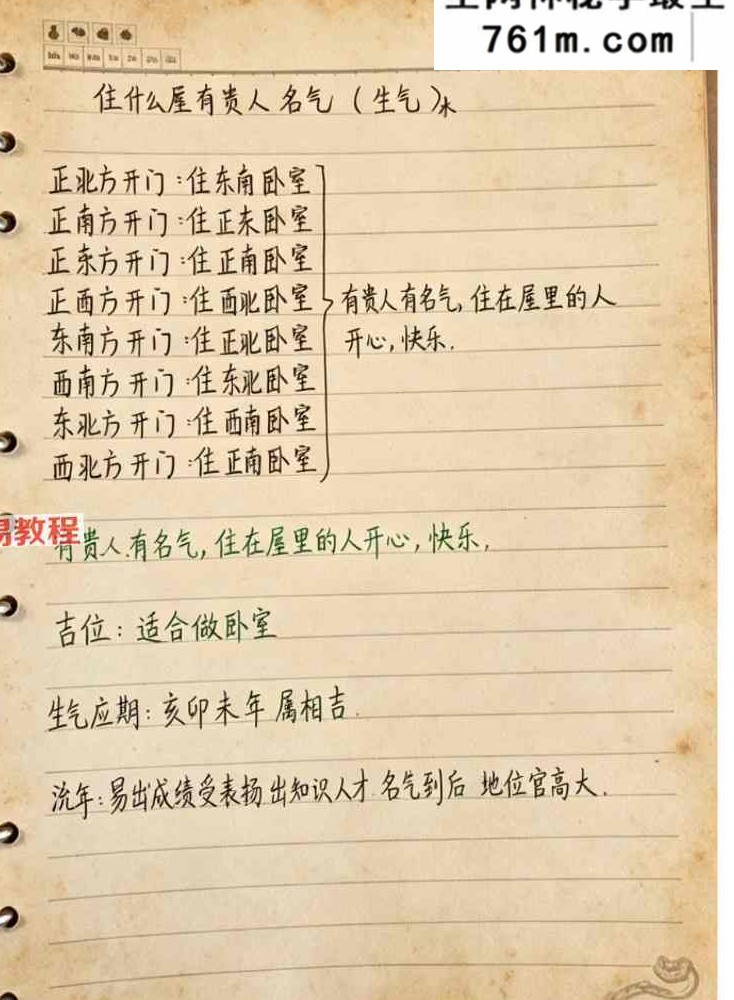 761m.com
住什么屋有贵人名气（生气）木
正北方开门：住东南卧室
正南方开门：住正东卧室
正东方开门：住正南卧室
正西方开门：住西北卧室
有贵人有名气，住在屋里的人
东南方开门：住正北卧室
开心，快乐.
西南方开门：住东北卧室
东北方开门：住西南卧室
西北方开门：住正南卧室
易教程
有贵人.有名气，住在屋里的人开心，快乐，
吉位：适合做卧室
生气应期：亥卯未年属相吉.
流年：易出成绩受表扬出知识人才.名气到后 地位官高大.